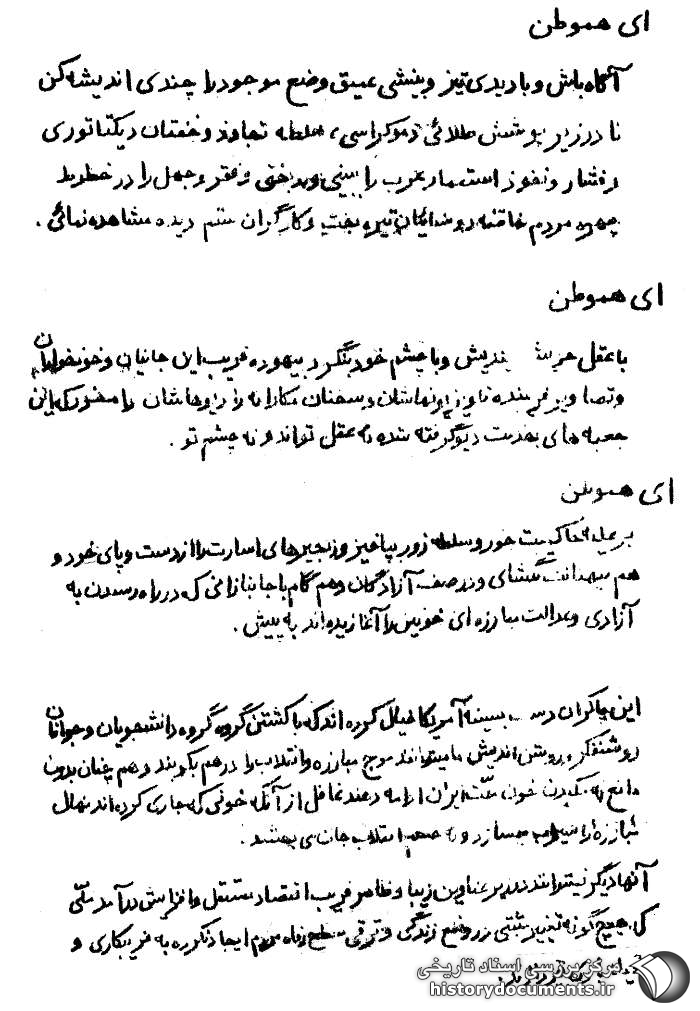 ای هموطن
آگاه باش و با دیدی تیز و بینشی عمیق وضع موجود را چندی اندیشه کن
تا در زیر پوشش طلائی دموکراسی، سلطه تجاوز و خفقان دیکتاتوری
و فشار و نفوذ استعمار غرب را ببینی و بدبختی و فقر و جهل را در خطوط
چهره مردم خاصه روستائیان تیره بخت و کارگران ستم دیده مشاهده نمائی.
ای هموطن
با عقل خویش بیندیش و با چشم خود بنگر بیهوده فریب این جانیان و خونخواران
و تصاویر فریبنده تلویزیونهاشان و سخنان مکارانه رادیوهاشان را مخور که این
جعبه های بخدمت دیو گرفته شده نه عقل تواند و نه چشم تو.
ای هموطن
بر علیه حاکمیت جور و سلطه زور بپاخیز و زنجیرهای اسارت را از دست و پای خود و
هم میهنانت بگشای و در صف آزادگان و هم گام با جانبازانی که در راه رسیدن به
آزادی و عدالت مبارزه ای خونین را آغازیده اند به پیش.
این چاکران دست بسینه آمریکا خیال کرده اند که با کشتن گروه گروه دانشجویان و جوانان
روشنفکر و روشن اندیش ما میتوانند موج مبارزه و انقلاب را درهم بکوبند و هم چنان بدون
مانع به مکیدن خون ملت ایران ادامه دهند غافل از آنکه خونی که جاری کرده اند نهال
مبارزه را سیراب میسازد و به انقلاب جان می بخشد.
آنها دیگر نمیتوانند در زیر عناوین زیبا و ظاهر فریب اقتصاد مستقل و افزایش درآمد ملی
که هیچ گونه تغییر مثبتی در وضع زندگی و ترقی سطح رفاه مردم ایجاد نکرده به فریبکاری و
مرکز بررسی اسناد تاریخی
historydocuments.ir